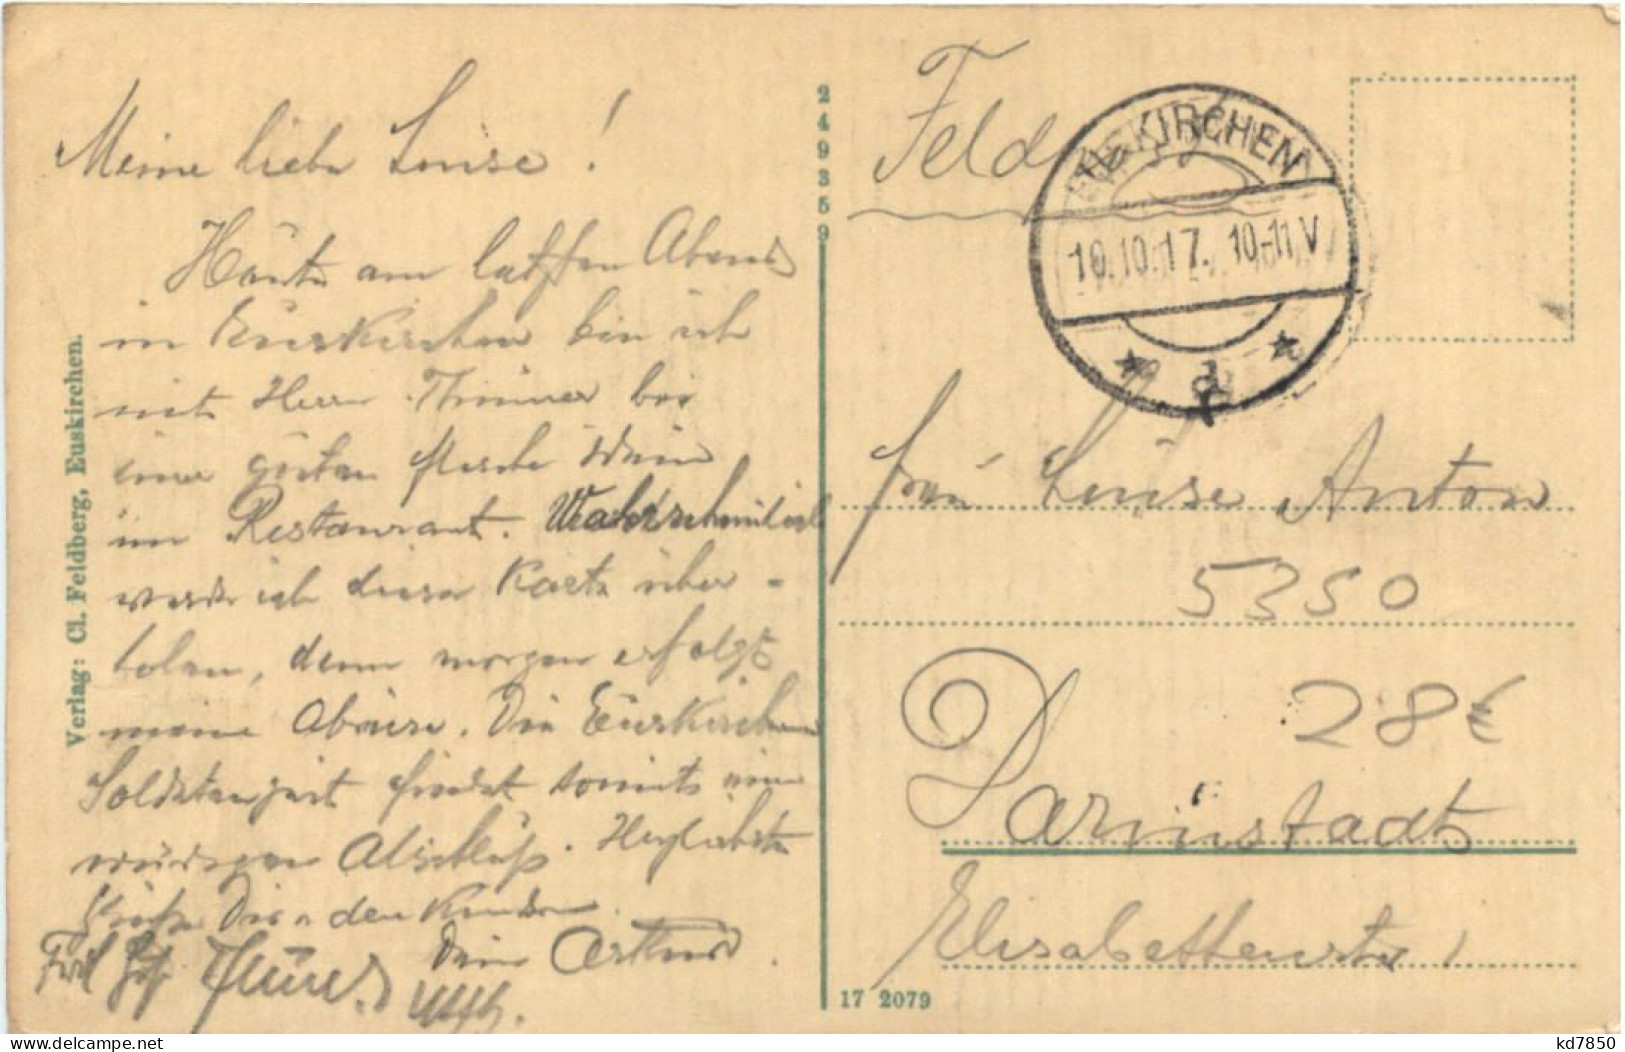 Meine liebe Louise!
Heute am letzten Abend
in Euskirchen bin ich
mit Herrn Thünner bei
einer guten Flasche Wein
im Restaurant. Wahrscheinlich
werde ich diese Karte über-
holen, denn morgen erfolgt
meine Abreise. Die Euskirchener
Soldatenzeit findet somit einen
würdigen Abschluß. Herzlichste
Grüße Dir u. den Kindern.
Dein Arthur.
Verlag: Cl. Feldberg, Euskirchen.
249359
Feld
EUSKIRCHEN
10.10.17. 10-11 V
* d *
Frau Louise Anton
5350
28€
Darmstadt
Elisabethenstr 1
17 2079
kd7850